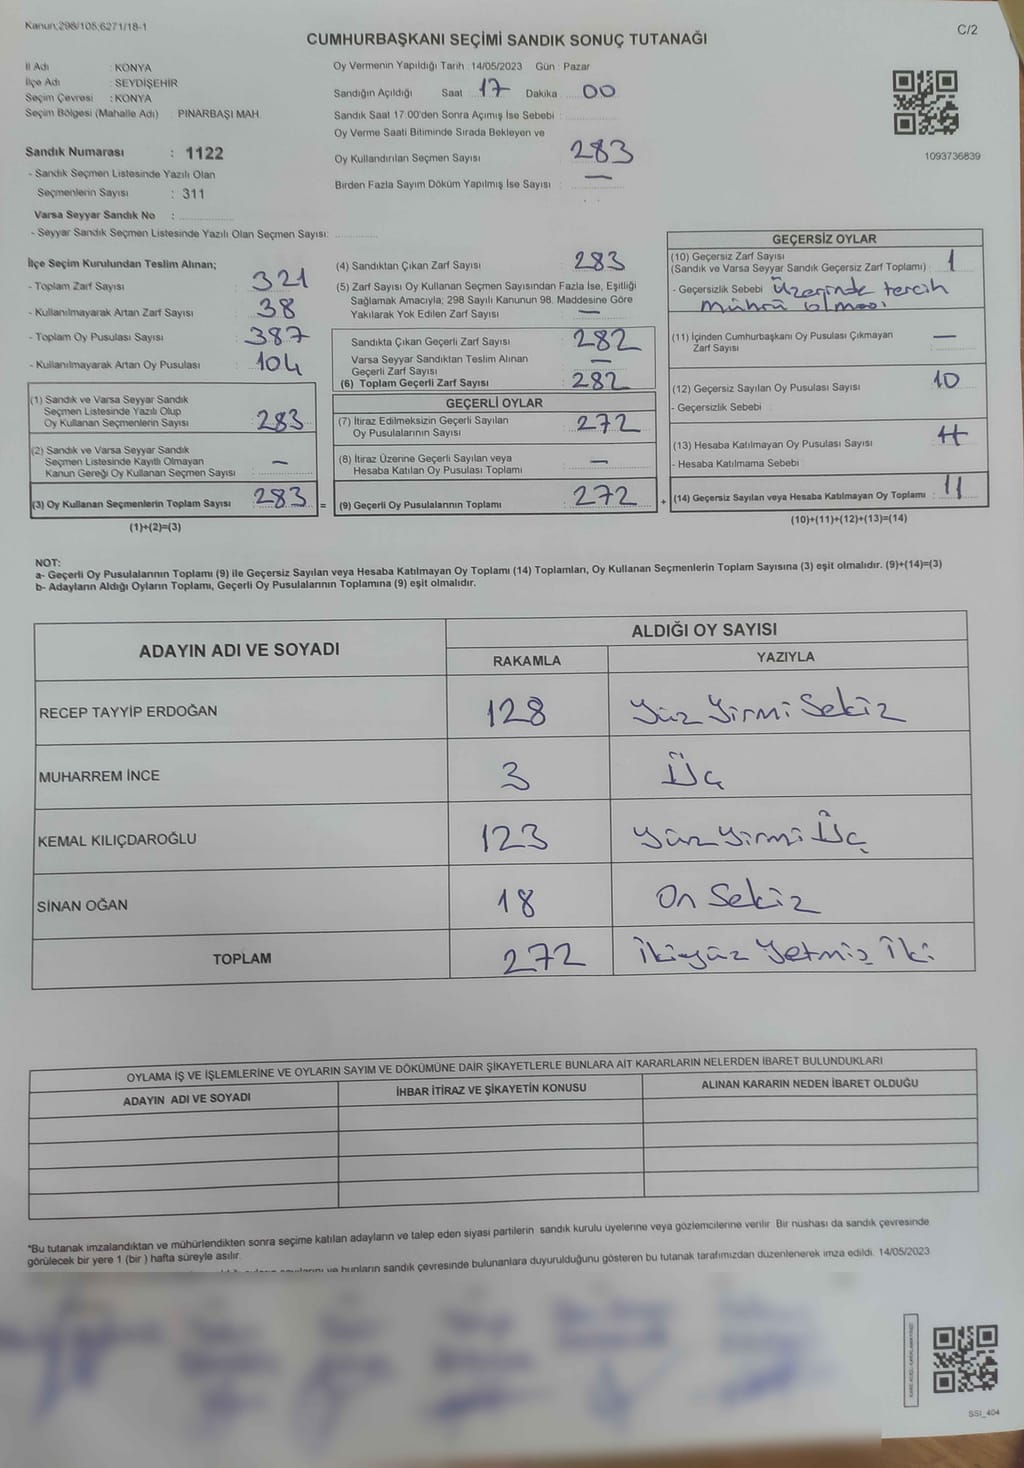 Kanun;298/105;6271/18-1
C/2
CUMHURBAŞKANI SEÇİMİ SANDIK SONUÇ TUTANAĞI
İl Adı : KONYA
İlçe Adı : SEYDİŞEHİR
Seçim Çevresi : KONYA
Seçim Bölgesi (Mahalle Adı) : PINARBAŞI MAH.
Sandık Numarası : 1122
- Sandık Seçmen Listesinde Yazılı Olan
Seçmenlerin Sayısı : 311
Varsa Seyyar Sandık No :
- Seyyar Sandık Seçmen Listesinde Yazılı Olan Seçmen Sayısı:
Oy Vermenin Yapıldığı Tarih : 14/05/2023 Gün : Pazar
Sandığın Açıldığı Saat : 17 Dakika : 00
Sandık Saat 17:00'den Sonra Açımış İse Sebebi :
Oy Verme Saati Bitiminde Sırada Bekleyen ve
Oy Kullandırılan Seçmen Sayısı : 283
Birden Fazla Sayım Döküm Yapılmış İse Sayısı : —
1093736839
İlçe Seçim Kurulundan Teslim Alınan;
- Toplam Zarf Sayısı : 321
- Kullanılmayarak Artan Zarf Sayısı : 38
- Toplam Oy Pusulası Sayısı : 387
- Kullanılmayarak Artan Oy Pusulası : 104
(1) Sandık ve Varsa Seyyar Sandık
Seçmen Listesinde Yazılı Olup
Oy Kullanan Seçmenlerin Sayısı : 283
(2) Sandık ve Varsa Seyyar Sandık
Seçmen Listesinde Kayıtlı Olmayan
Kanun Gereği Oy Kullanan Seçmen Sayısı : —
(3) Oy Kullanan Seçmenlerin Toplam Sayısı : 283 =
(1)+(2)=(3)
(4) Sandıktan Çıkan Zarf Sayısı : 283
(5) Zarf Sayısı Oy Kullanan Seçmen Sayısından Fazla İse, Eşitliği
Sağlamak Amacıyla; 298 Sayılı Kanunun 98. Maddesine Göre
Yakılarak Yok Edilen Zarf Sayısı : —
Sandıkta Çıkan Geçerli Zarf Sayısı : 282
Varsa Seyyar Sandıktan Teslim Alınan
Geçerli Zarf Sayısı : —
(6) Toplam Geçerli Zarf Sayısı : 282
GEÇERLİ OYLAR
(7) İtiraz Edilmeksizin Geçerli Sayılan
Oy Pusulalarının Sayısı : 272
(8) İtiraz Üzerine Geçerli Sayılan veya
Hesaba Katılan Oy Pusulası Toplamı : —
(9) Geçerli Oy Pusulalarının Toplamı : 272 +
GEÇERSİZ OYLAR
(10) Geçersiz Zarf Sayısı
(Sandık ve Varsa Seyyar Sandık Geçersiz Zarf Toplamı) : 1
- Geçersizlik Sebebi : Üzerinde tercih
mührü olması
(11) İçinden Cumhurbaşkanı Oy Pusulası Çıkmayan
Zarf Sayısı : —
(12) Geçersiz Sayılan Oy Pusulası Sayısı : 10
- Geçersizlik Sebebi :
(13) Hesaba Katılmayan Oy Pusulası Sayısı :
- Hesaba Katılmama Sebebi :
(14) Geçersiz Sayılan veya Hesaba Katılmayan Oy Toplamı : 11
(10)+(11)+(12)+(13)=(14)
NOT:
a- Geçerli Oy Pusulalarının Toplamı (9) ile Geçersiz Sayılan veya Hesaba Katılmayan Oy Toplamı (14) Toplamları, Oy Kullanan Seçmenlerin Toplam Sayısına (3) eşit olmalıdır. (9)+(14)=(3)
b- Adayların Aldığı Oyların Toplamı, Geçerli Oy Pusulalarının Toplamına (9) eşit olmalıdır.
ADAYIN ADI VE SOYADI
ALDIĞI OY SAYISI
RAKAMLA YAZIYLA
RECEP TAYYİP ERDOĞAN 128 Yüz Yirmi Sekiz
MUHARREM İNCE 3 Üç
KEMAL KILIÇDAROĞLU 123 Yüz Yirmi Üç
SİNAN OĞAN 18 On Sekiz
TOPLAM 272 İkiyüz Yetmiş İki
OYLAMA İŞ VE İŞLEMLERİNE VE OYLARIN SAYIM VE DÖKÜMÜNE DAİR ŞİKAYETLERLE BUNLARA AİT KARARLARIN NELERDEN İBARET BULUNDUKLARI
ADAYIN ADI VE SOYADI İHBAR İTİRAZ VE ŞİKAYETİN KONUSU ALINAN KARARIN NEDEN İBARET OLDUĞU
*Bu tutanak imzalandıktan ve mühürlendikten sonra seçime katılan adayların ve talep eden siyasi partilerin sandık kurulu üyelerine veya gözlemcilerine verilir. Bir nüshası da sandık çevresinde
görülecek bir yere 1 (bir ) hafta süreyle asılır.
ve bunların sandık çevresinde bulunanlara duyurulduğunu gösteren bu tutanak tarafımızdan düzenlenerek imza edildi. 14/05/2023
SSI_404